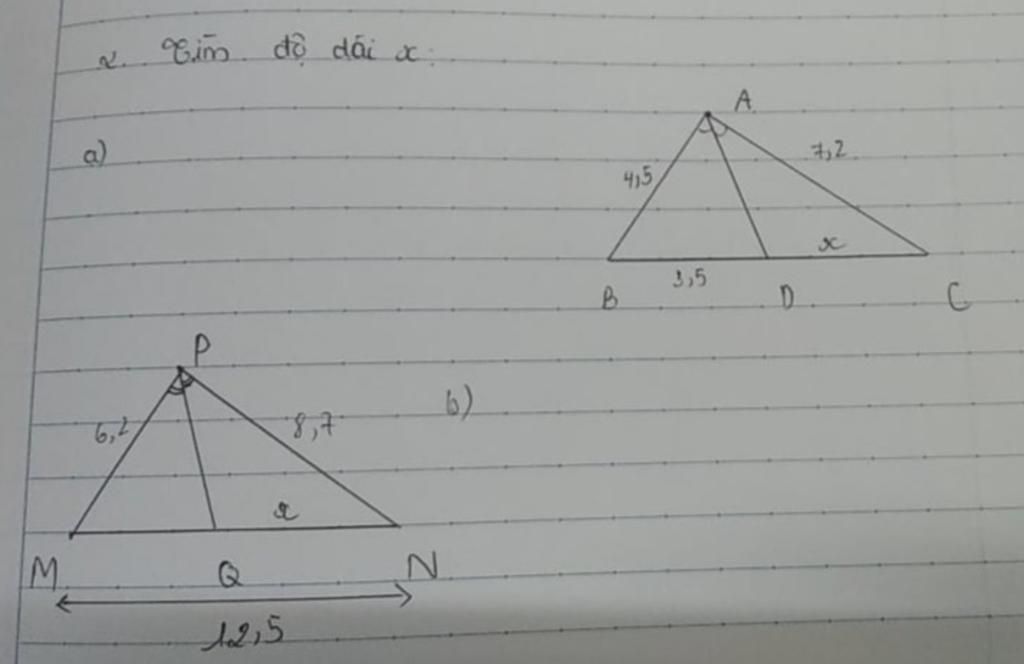 2. Tìm độ dài x:
a)
A
4,5
7,2
x
3,5
B D C
P
6,2
8,7
b)
x
M Q N
12,5